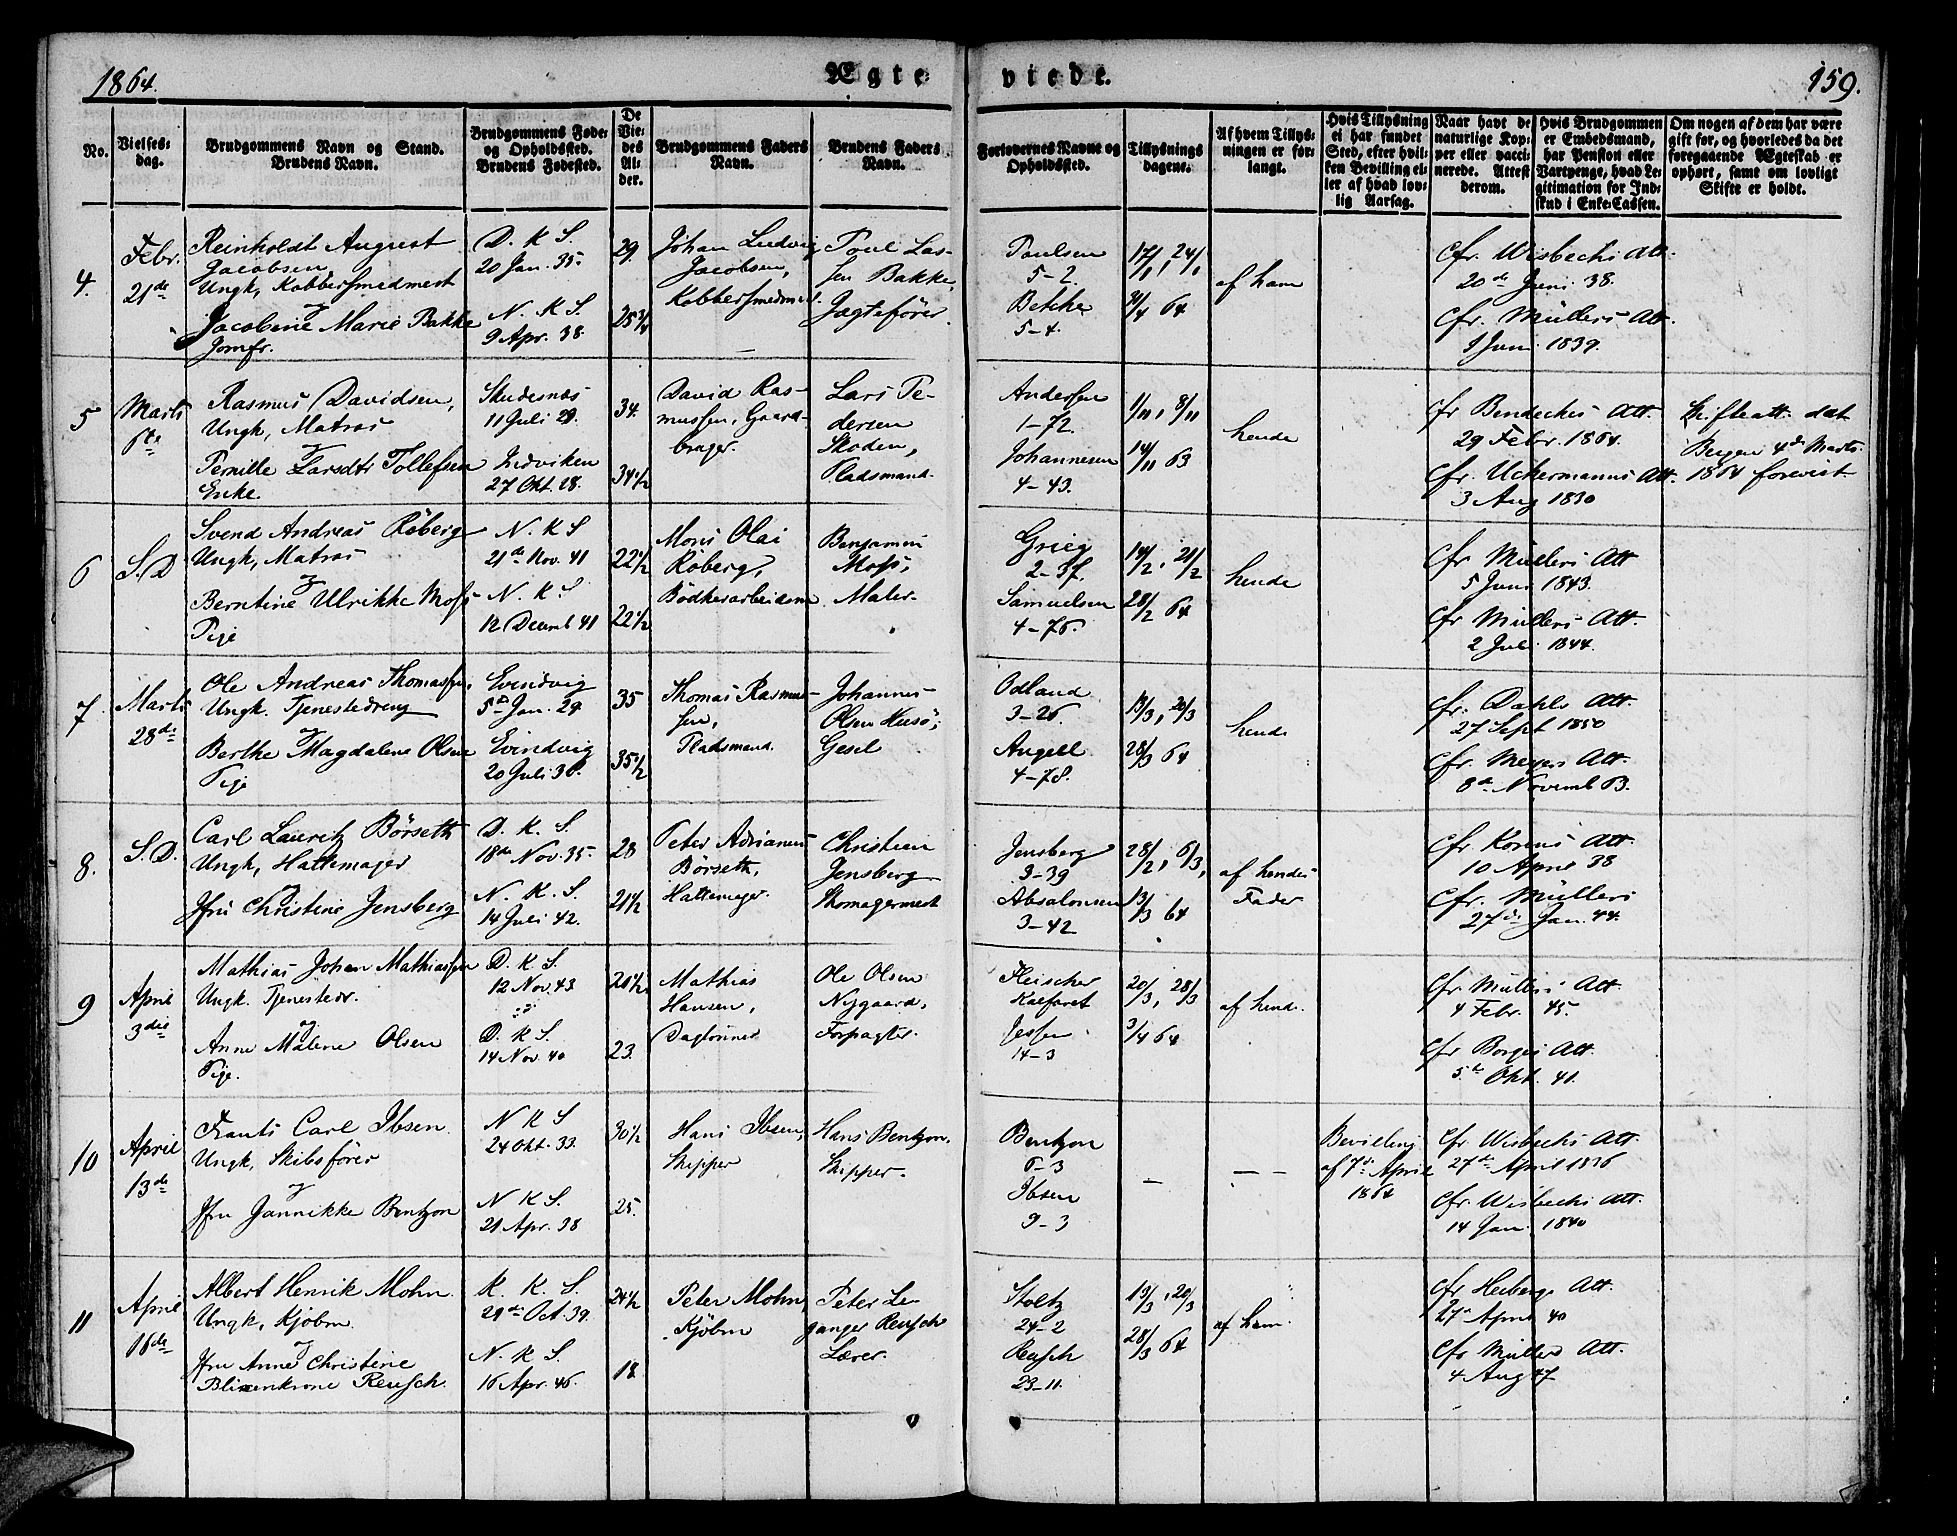 1864.
Ægte
viede.
159.
No.
Vielses-
dag.
Brudgommens Navn og Stand.
Brudens Navn.
Brudgommens Føde-
og Opholdssted.
Brudens Fødested.
De
Vie-
des
Al-
der.
Brudgommens Faders
Navn.
Brudens Faders
Navn.
Forlovernes Navne og
Opholdssted.
Tillysnings
dagene.
Af hvem Tillys-
ningen er for-
langt.
Hvis Tillysning
ei har fundet
Sted, efter hvil-
ken Bevilling el-
ler af hvad lov-
lig Aarsag.
Naar havt de
naturlige Kop-
per eller vacci-
nerede. Attest
derom.
Hvis Brudgommen
er Embedsmand,
har Pension eller
Vartpenge, hvad Le-
gitimation for Ind-
skud i Enke-Cassen.
Om nogen af dem har være
gift før, og hvorledes da det
foregaaende Ægteskab er
ophørt, samt om lovligt
Skifte er holdt.
4.
Febr.
21de
Reinholdt August
Jacobsen
Ungk, Kobbersmedmest
og
Jacobine Marie Bakke
Jomfr.
D. K. S.
20 Jan. 35.
N. K. S.
9 Apr. 38
29.
25 3/4
Johan Ludvig
Jacobsen,
Kobbersmedmest.
Poul Las-
sen Bakke,
Jægtefører.
Poulsen
5-2.
Betcke
5-4.
17/1, 24/1
64
af ham
Cfr. Wisbechs Att.
20de Juni 38.
Cfr. Müllers Att.
1 Juni 1839.
5
Marts
6te
Rasmus Davidsen,
Ungk, Matros
og
Pernille Larsdtr Tollefsen
Enke.
Skudesnæs
11 Juli 29.
Indviken
27 Okt. 28.
34.
34 1/2
David Ras-
mussen, Gaard-
bruger.
Lars Pe-
dersen
Skoden,
Pladsmand.
Andersen
1-72.
Johannesen
4-43.
1/11, 8/11
14/11 63
hende
Cfr Bendeches Att.
29 Febr. 1864.
Cfr. Uckermanns Att.
3 Aug 1830
Skifteatt. dat
Bergen 4de Marts
1864 forevist.
6
S. D
Svend Andreas Röberg
Ungk, Matros
og
Berntine Ulrikke Moss
Pige
N. K. S
21de Nov. 41
N. K. S.
12 Decemb 41
22 1/2
22 1/2
Mons Olai
Röberg,
Bödkerarbeidsm
Benjamin
Moss,
Maler.
Grieg
2-37.
Samuelsen
4-76.
14/2, 21/2
28/2 64
hende
Cfr Müllers Att
5 Juni 1843.
Cfr Müllers Att.
2 Juli 1844.
7.
Marts
28de
Ole Andreas Thomassen,
Ungk. Tjenestedreng
og
Berthe Magdalene Olsen
Pige
Evindvig
5te Jan. 29
Evindvig
35
35 1/2
Thomas Rasmus-
sen,
Pladsmand.
Johannes
Olsen Husö,
Gesel
Odland
3-26.
Angell
4-78.
13/3, 20/3
28/3 64
hende
Cfr. Dahls Att.
27 Sept 1850
Cfr. Meyers Att.
8de Novemb 63.
8.
S. D.
Carl Lauritz Börseth
Ungk, Hattemager
og
Jfru Christine Jensberg
D. K. S.
18de Nov. 35.
N. K. S.
14 Juli 42.
28
21 1/2
Peter Adrianus
Börseth,
Hattemager.
Christian
Jensberg
Skomagermest
Jensberg
3-39
Absalonsen
3-42
28/2, 6/3,
13/3 64
af hendes
Fader
Cfr. Korens Att.
10 April 38
Cfr. Müllers
27de Jan. 44.
9
April
3die
Mathias Johan Mathiassen
Ungk. Tjenestedr.
og
Anne Malene Olsen
Pige.
D. K. S.
12 Nov. 43
D. K. S.
14 Nov 40
20 1/2
23.
Mathias
Hansen,
Daglönner
Ole Olsen
Nygaard,
Forpagter.
Fleischer
Kalfaret
Jessen
14-3
20/3, 28/3
3/4 64
af hend.
Cfr Müllers Att.
4 Febr. 45.
Cfr Borges Att.
5te Okt. 41.
10
April
13de
Frants Carl Ibsen
Ungk, Skibsförer
og
Jfru Jannikke Bentzon
N K S
24 Okt. 33.
N K S.
21 Apr. 38
30 1/2
25.
Hans Ibsen,
Skipper
Hans Bentzon,
Skipper.
Bentzon
6-3
Ibsen
9-3
—
— —
Bevilling
af 7de April
1864
Cfr Wisbechs Att
27de April 1836
Cfr Wisbechs Att.
14 Jan. 1840
11
April
16de
Albert Henrik Mohn
Ungk, Kjöbm.
og
Jfru Anne Christine
Blixenkrone Reusch.
K. K. S.
29de Oct. 39.
N. K. S.
16 Apr. 46.
24 1/2
18.
Peter Mohn,
Kjöbm
Peter Le-
ganger Reusch
Lærer.
Stoltz
24-2
Reusch
23-11.
13/3, 20/3
28/3 64
af ham.
Cfr Heibergs Att.
27 April 40
Cfr Müllers Att.
4 Aug 47